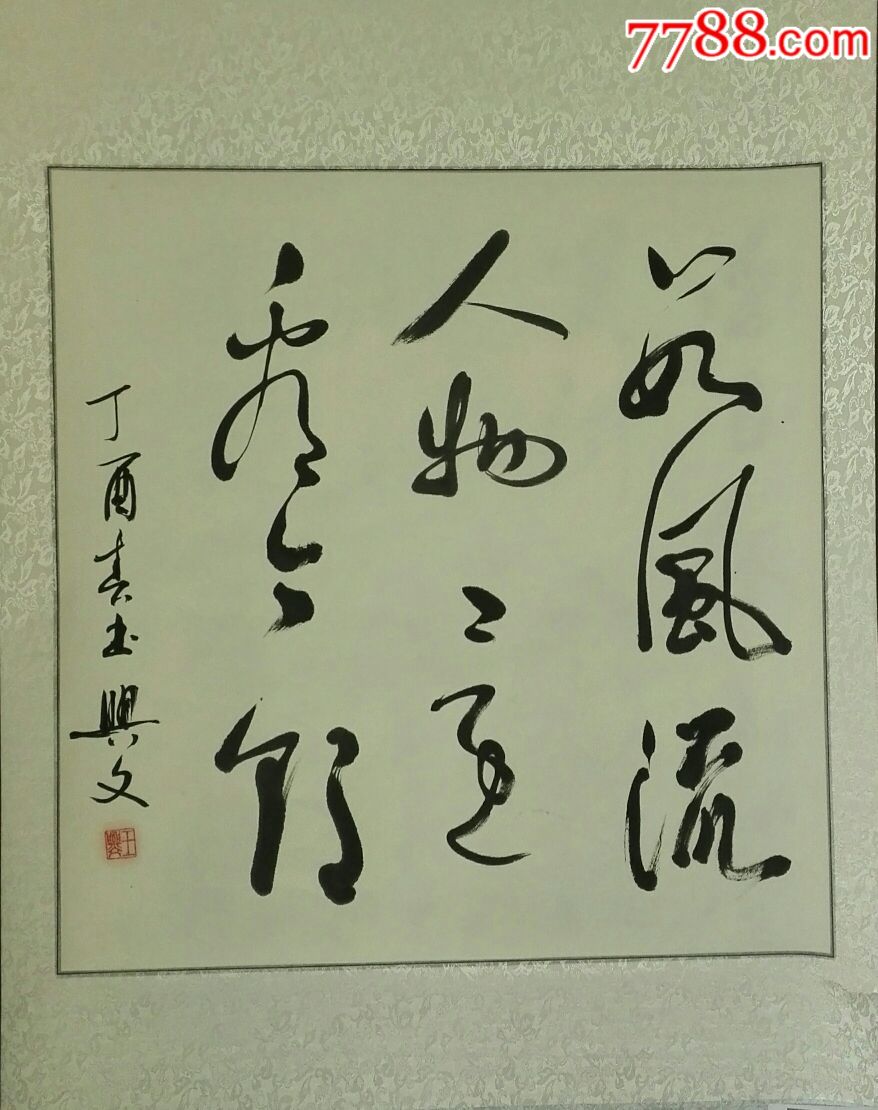 7788.com
數風流
人物還
看今朝
丁酉春書興文